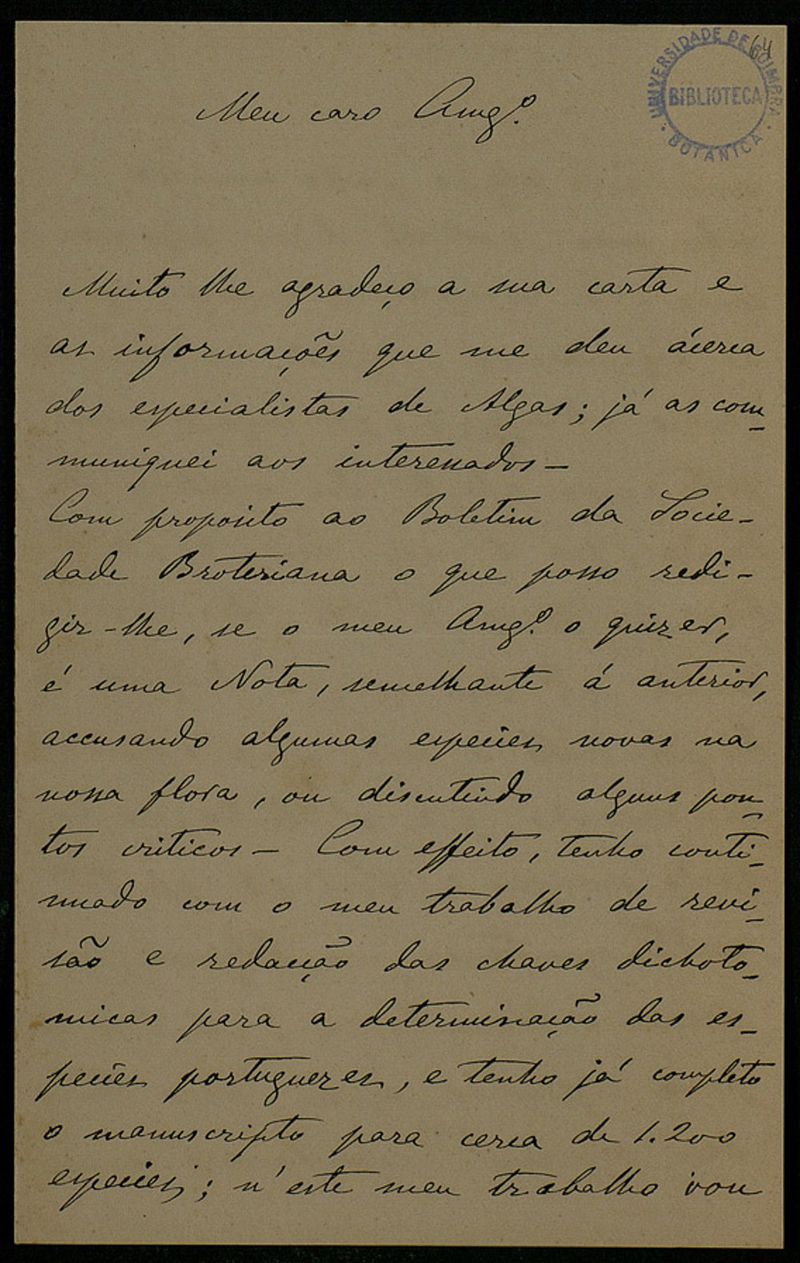 64
UNIVERSIDADE DE COIMBRA
BIBLIOTECA
BOTANICA
Meu caro Amgº.
Muito lhe agradeço a sua carta e
as informações que me deu ácerca
dos especialistas de Algas; já as com-
muniquei aos interessados —
Com proposito ao Boletim da Socie-
dade Broteriana o que posso redi-
gir-lhe, se o meu Amgº. o quizer,
é uma Nota, semelhante á anterior,
accusando algumas especies novas na
nossa flora, ou discutindo alguns pon-
tos criticos — Com effeito, tenho conti-
nuado com o meu trabalho de revi-
são e redacção das chaves dichoto-
micas para a determinação das es-
pecies portuguezes, e tenho já completo
o manuscripto para cerca de 1.200
especies; n'este meu trabalho vou